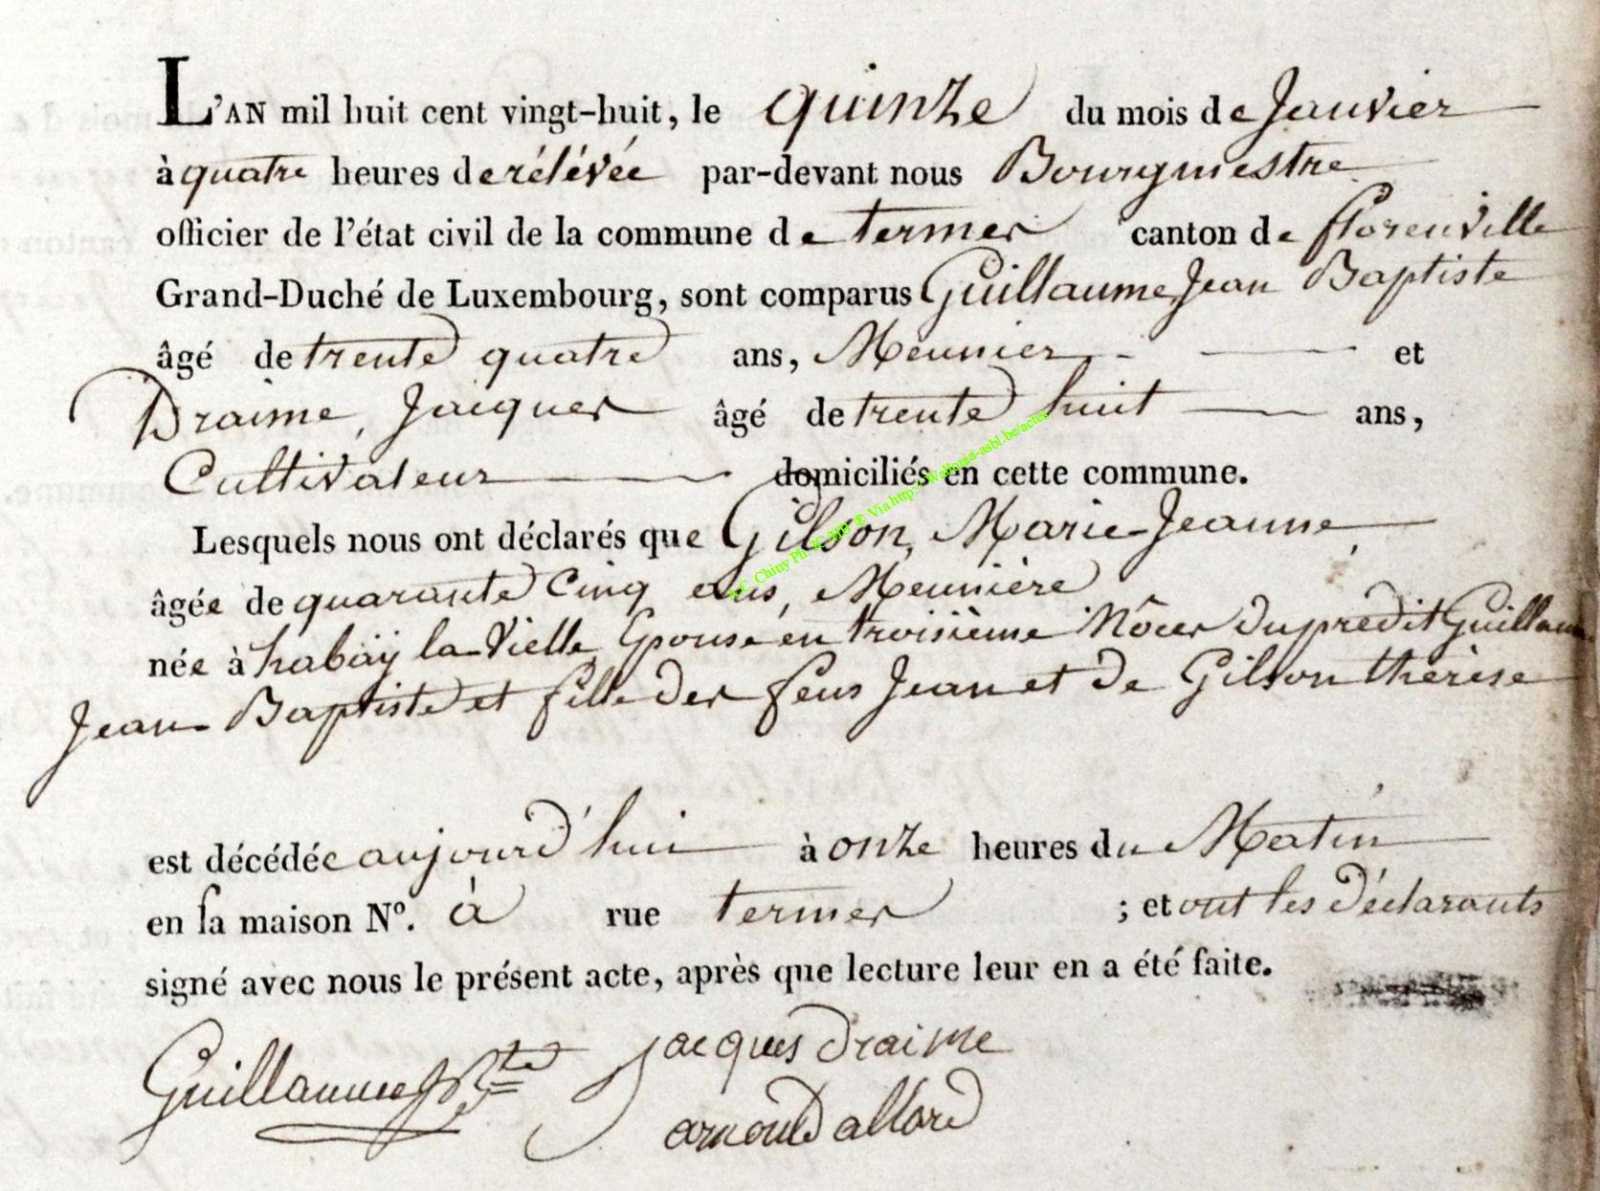 L'AN mil huit cent vingt-huit, le quinze du mois de Janvier
à quatre heures de rélévée par-devant nous Bourgmestre
officier de l'état civil de la commune de termes canton de florenville
Grand-Duché de Luxembourg, sont comparus Guillaume, Jean Baptiste
âgé de trente quatre ans, Meunier et
Draime, Jacques âgé de trente huit ans,
Cultivateur domiciliés en cette commune.
Lesquels nous ont déclarés que Gilson, Marie-Jeanne
âgée de quarante Cinq ans, Meunière
née à habaÿ la Vielle Epouse en troisième Nôces du prédit Guillaume
Jean Baptiste et fille des feus Jean et de Gilson thérèse
est décédée aujourd'hui à onze heures du Matin
en sa maison Nº. à rue termes ; et ont les déclarants
signé avec nous le présent acte, après que lecture leur en a été faite.
Guillaume J Bte Jacques Draime
arnould allard